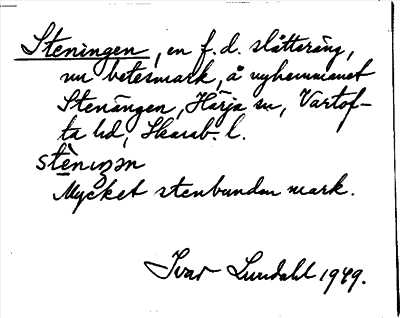 Steningen, en f.d. slåtteräng,
nu betesmark, å nyhemmanet
Stenängen, Härja sn, Vartof-
ta hd, Skarab. l.
stèniŋən
Mycket stenbunden mark.
Ivar Lundahl 1949.